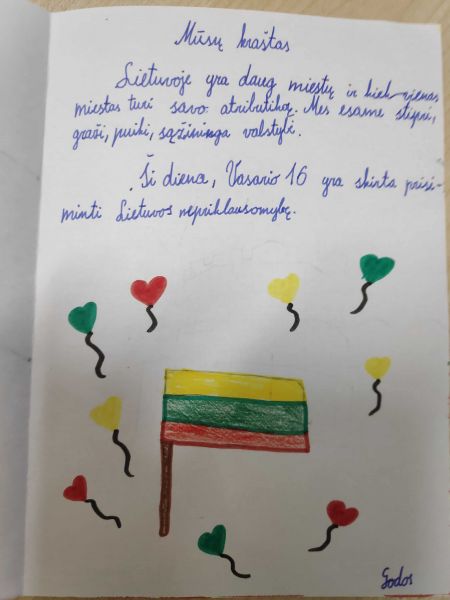 Mūsų kraštas
Lietuvoje yra daug miestų ir kiekvienas
miestas turi savo atributiką. Mes esame stipri,
graži, puiki, sąžininga valstybė.
Ši diena, Vasario 16 yra skirta prisi-
minti Lietuvos nepriklausomybę.
Godos